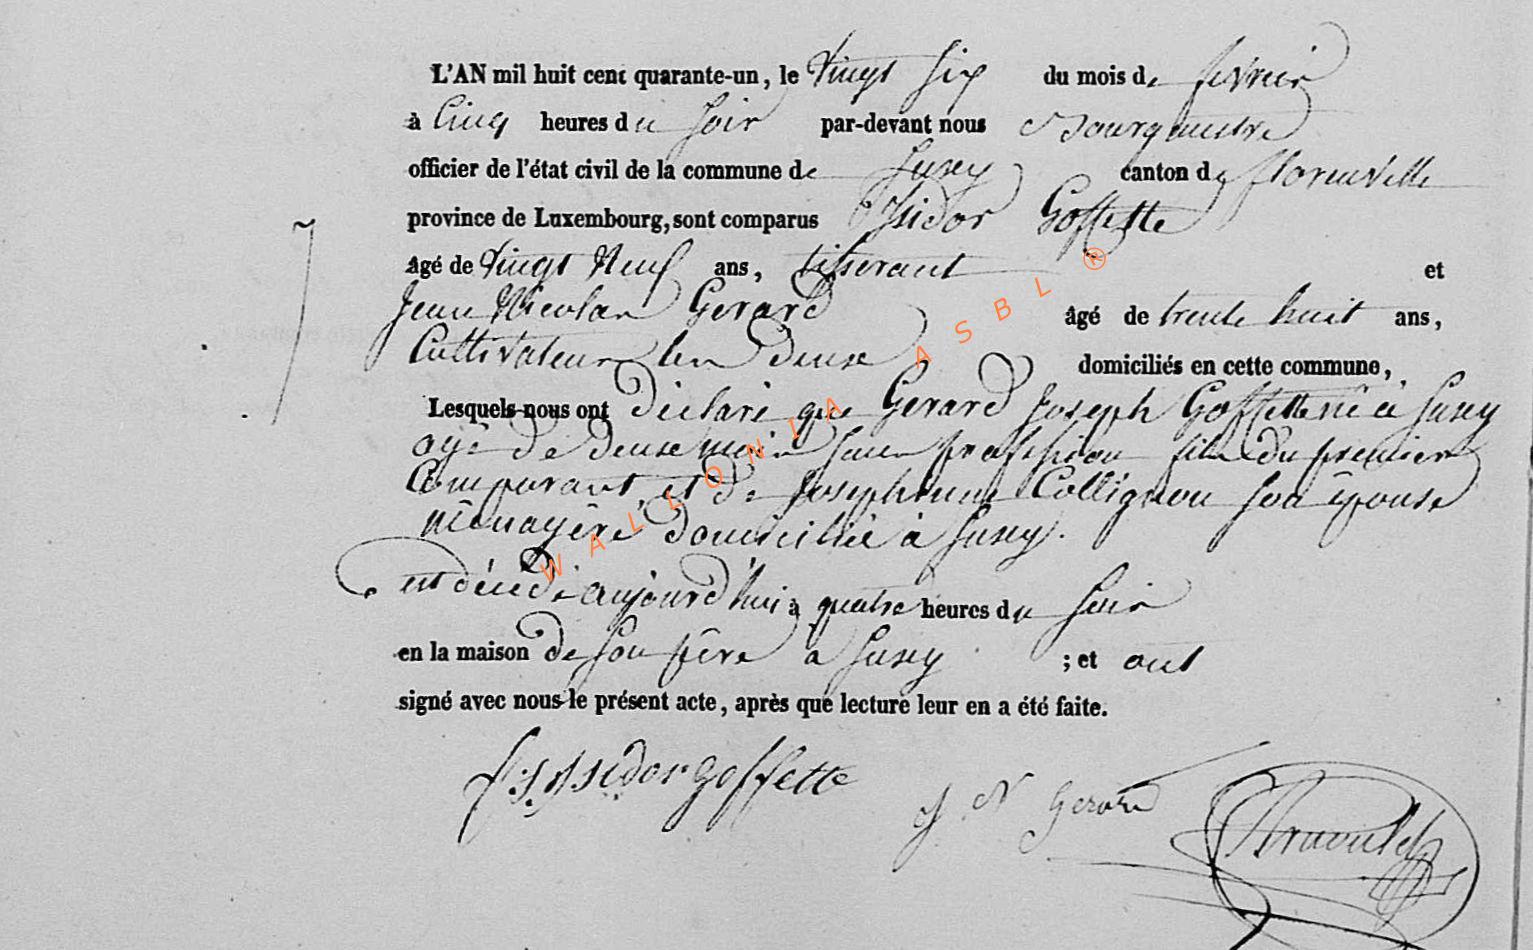 L'AN mil huit cent quarante-un, le vingt six du mois de fevrier
à Cinq heures du Soir par-devant nous Bourgmestre
officier de l'état civil de la commune de Suxy canton de florenville
province de Luxembourg, sont comparus Isidor Goffette
Agé de vingt Neuf ans, tisserant et
Jean Nicolas Gerard âgé de trente huit ans,
Cultivateur les deux domiciliés en cette commune,
Lesquels nous ont déclaré que Gerard Joseph Goffette né à Suxy
agé de deux mois sans profession fils du premier
Comparant et de Josephinne Collignon son épouse
ménagère domiciliée à Suxy.
est décédé aujourd'hui à quatre heures du Soir
en la maison de son père à Suxy ; et ont
signé avec nous le présent acte, après que lecture leur en a été faite.
Isidor goffette
J N Gerard
WALLONIA ASBL ®
7